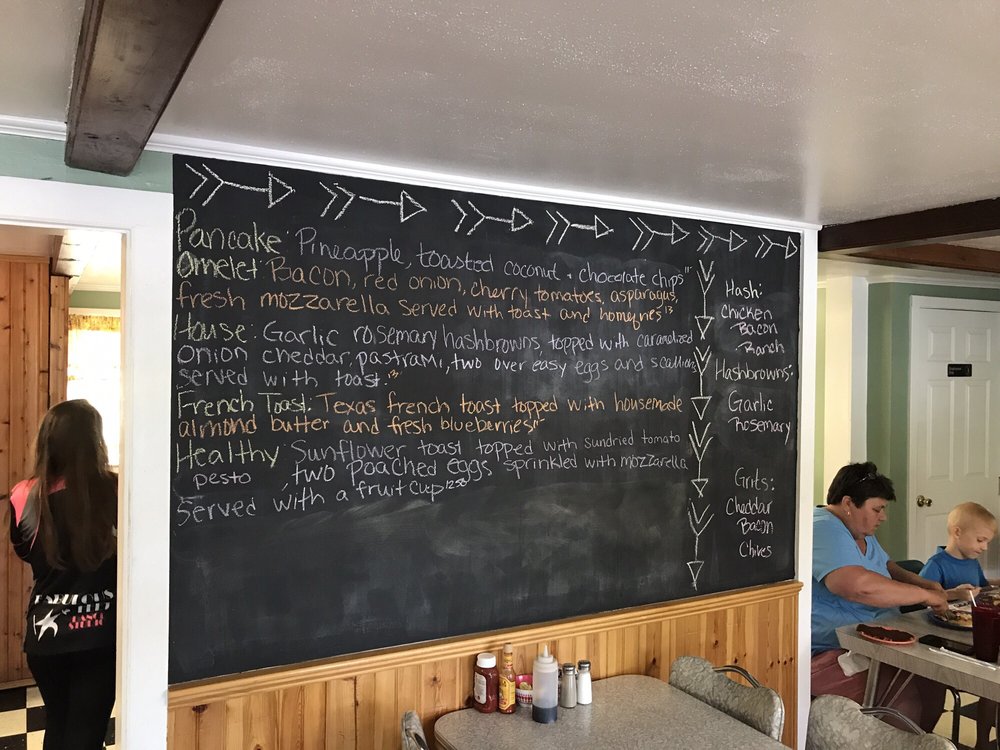 Pancake: Pineapple, toasted coconut + chocolate chips 11
Omelet: Bacon, red onion, cherry tomatoes, asparagus,
fresh mozzarella served with toast and homefries 13
House: Garlic rosemary hashbrowns, topped with caramelized
onion cheddar, pastrami, two over easy eggs and scallions
served with toast. 13
French Toast: Texas french toast topped with housemade
almond butter and fresh blueberries 11
Healthy: Sunflower toast topped with sundried tomato
pesto, two poached eggs sprinkled with mozzarella
served with a fruit cup 12.50
Hash:
Chicken
Bacon
Ranch
Hashbrowns:
Garlic
Rosemary
Grits:
Cheddar
Bacon
Chives
FABULOUS
FEET
DANCE
STUDIO